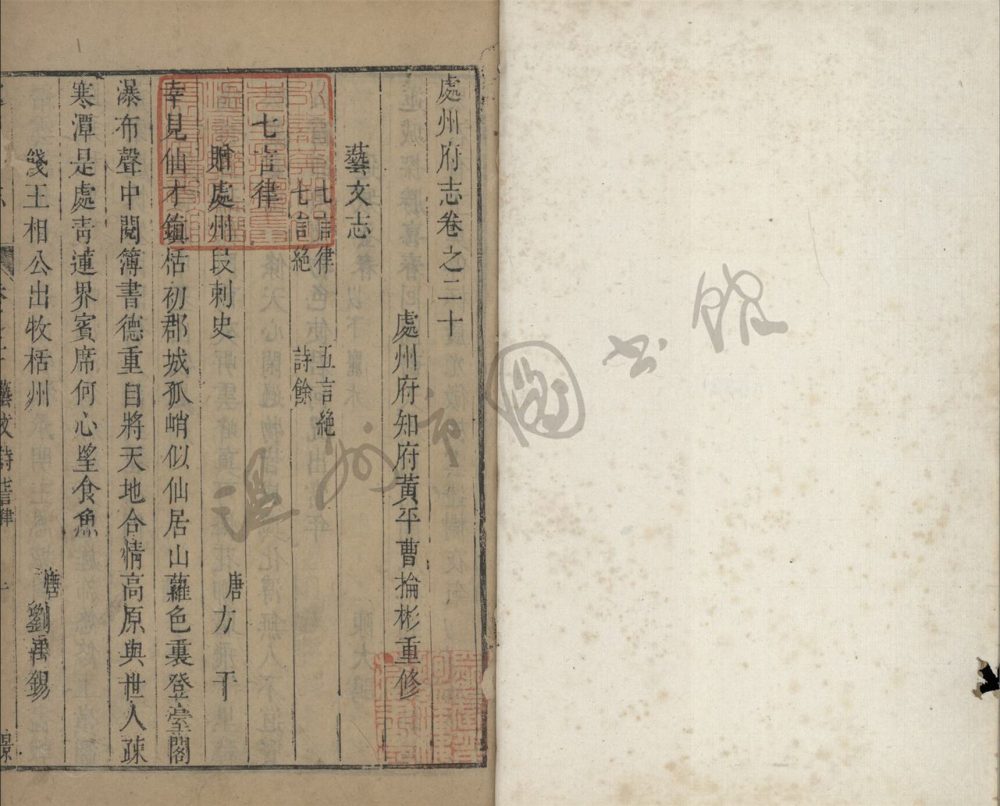 處州府志卷之二十
處州府知府黃平曹掄彬重修
藝文志
七言律 五言絕
七言絕 詩餘
七言律
贈處州段刺史 唐 方干
幸見仙才鎮栝初郡城孤峭似仙居山蘿色裏登臺閣
瀑布聲中閱簿書德重自將天地合情高原與世人疎
寒潭是處靑連界賓席何心望食魚
牋王相公出牧栝州 唐 劉禹錫
藝文詩七言律 一
温州市图书馆